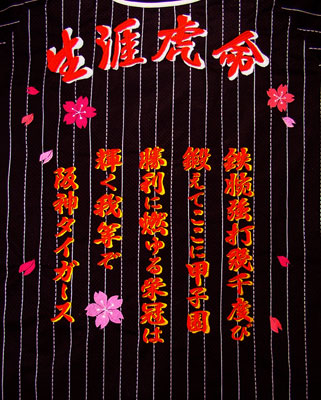 生涯虎命
鉄腕強打幾千度び
鍛えてここに甲子園
勝利に燃ゆる栄冠は
輝く我等ぞ
阪神タイガース